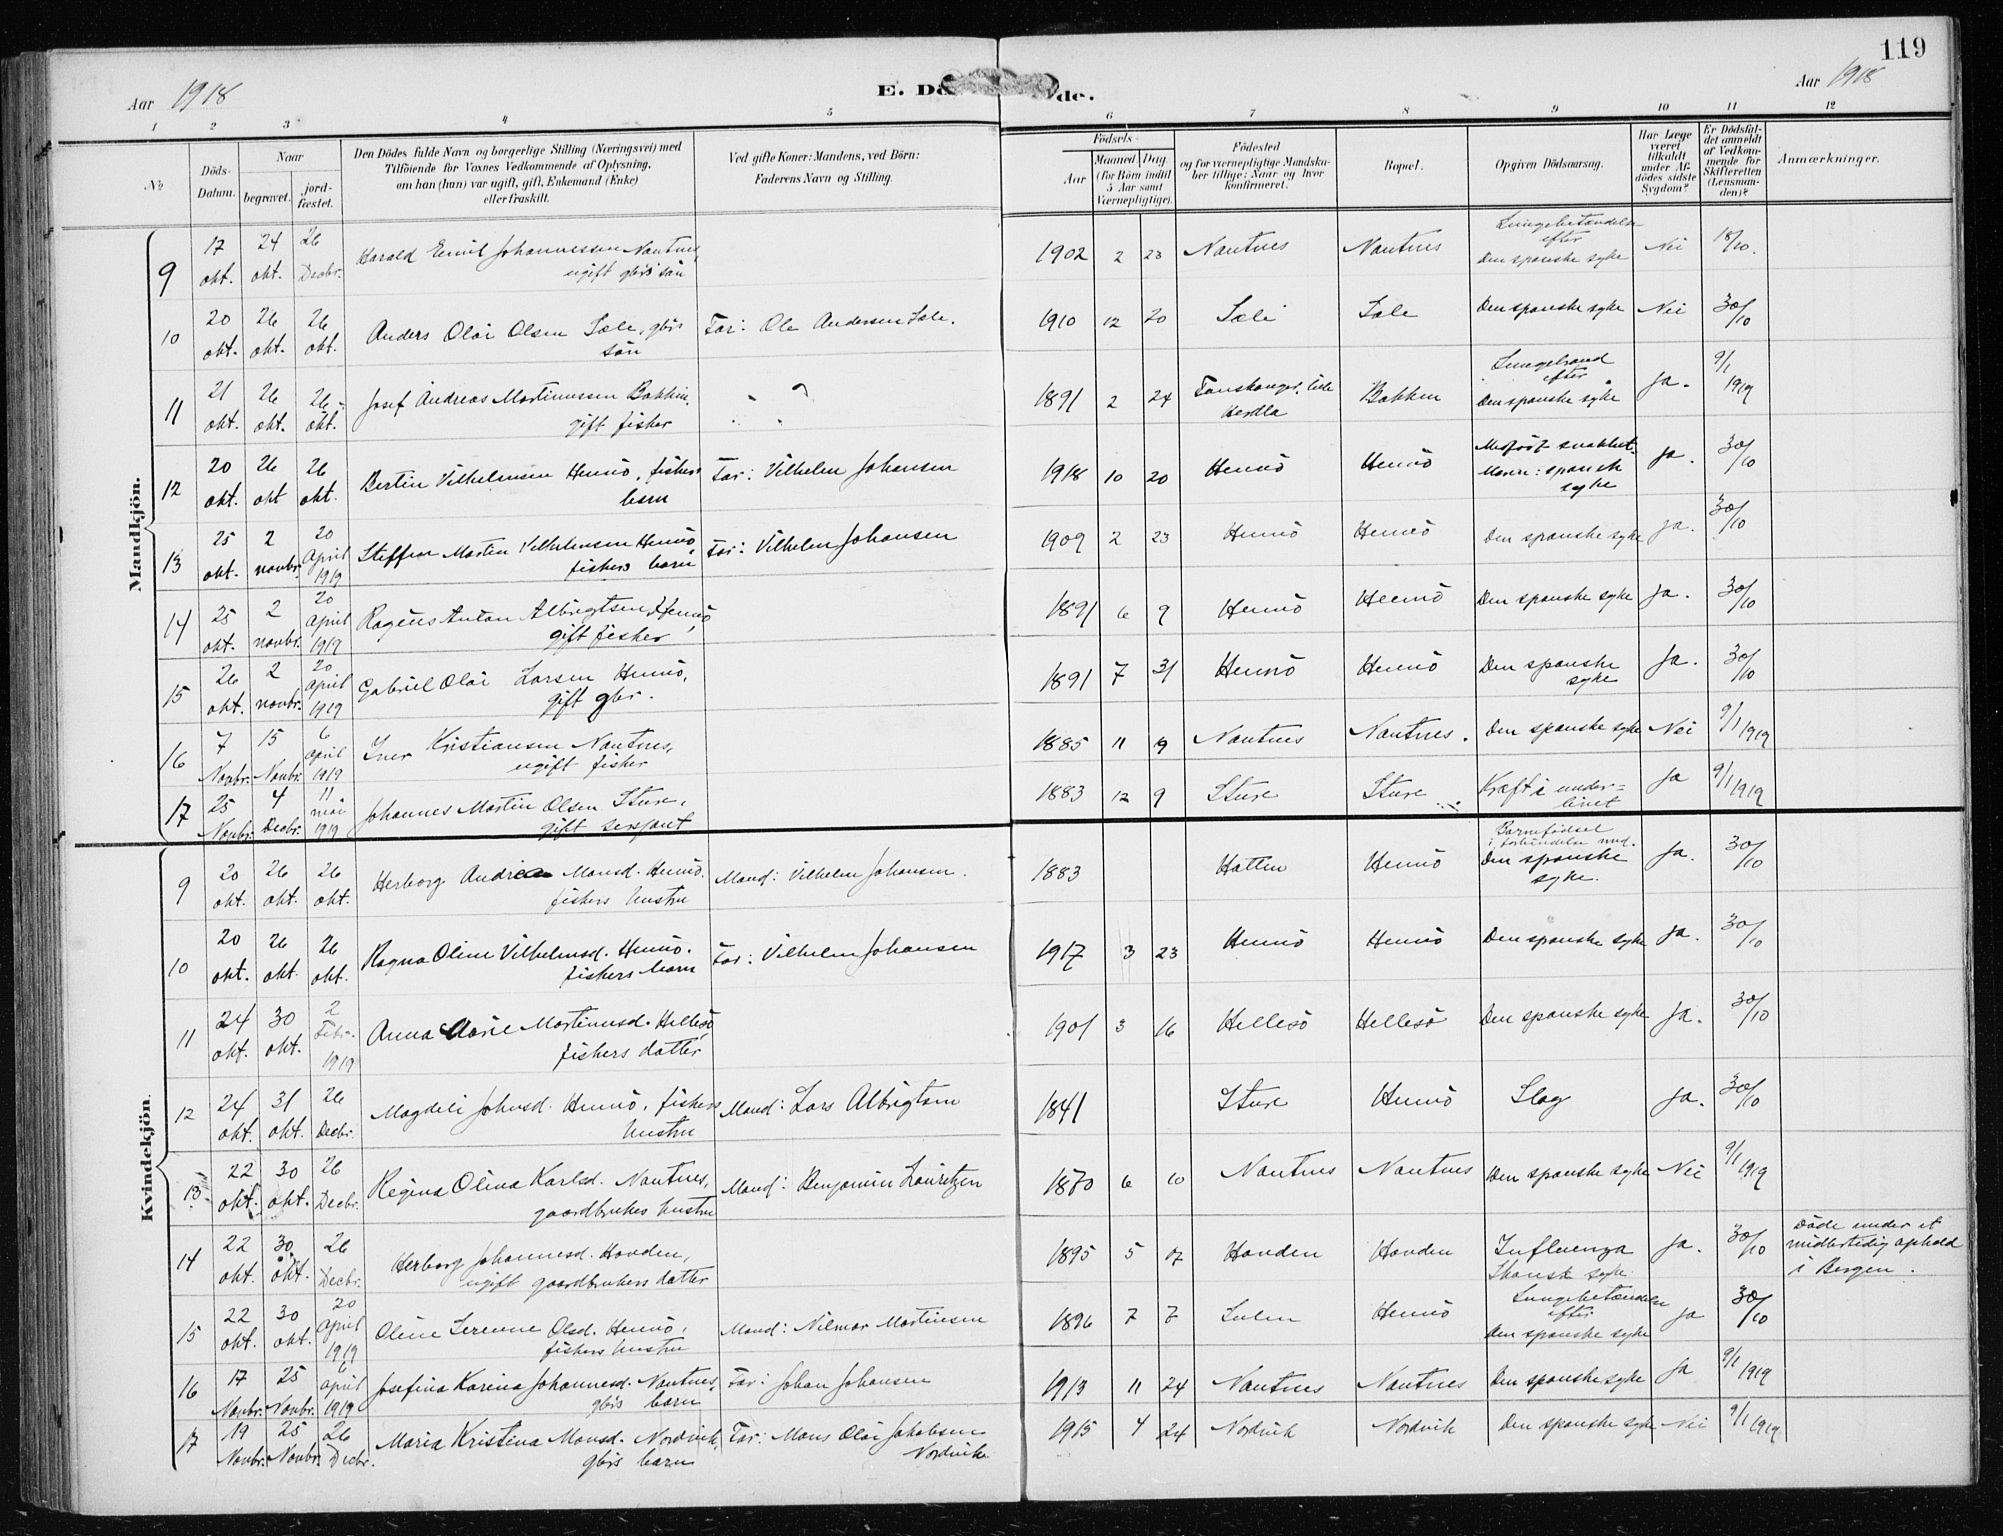 119
Aar 1918
E. Dö
de.
Aar 1918
1 2 3 4 5 6 7 8 9 10 11 12
No
Döds-Datum.
Naar
begravet.
jord-fæstet.
Den Dödes fulde Navn og borgerlige Stilling (Næringsvei) med
Tilföiende for Voxnes Vedkommende af Oplysning,
om han (hun) var ugift, gift, Enkemand (Enke)
eller fraskilt.
Ved gifte Koner: Mandens, ved Börn:
Faderens Navn og Stilling.
Födsels-
Aar
Maaned Dag
(for Börn indtil
5 Aar samt
Værnepligtige).
Födested
og for værnepligtige Mandska-
ber tillige: Naar og hvor
konfirmeret.
Bopæl.
Opgiven Dödsaarsag.
Har Læge
været
tilkaldt
under Af-
dödes sidste
Sygdom?
Er Dödsfal-
det anmeldt
af Vedkom-
mende for
Skifteretten
(Lensman-
den)?
Anmærkninger.
Mandkjön.
9 17 okt. 24 okt. 26 Decbr. Harald Emil Johannessen Nautnes, ugift gbrs sön 1902 2 23 Nautnes Nautnes Lungebetændelse efter Den spanske syke Nei 18/10.
10 20 okt. 26 okt. 26 okt. Anders Olai Olsen Sæle, gbrs sön Far: Ole Andersen Sæle. 1910 12 20 Sæle Sæle Den spanske syke Nei 30/10
11 21 okt. 26 okt. 26 okt. Josef Andreas Martinussen Bakken, gift fisker 1891 2 24 Herdla Bakken Lungebrand efter Den spanske syke Ja. 9/1 1919
12 20 okt. 26 okt 26 okt. Bertin Vilhelmsen Hennö, fiskers barn Far: Vilhelm Johansen 1918 10 20 Hennö Hennö spansk syke Ja. 30/10
13 25 okt. 2 novbr. 20 April 1919 Steffen Martin Vilhelmsen Hennö, fiskers barn Far: Vilhelm Johansen 1909 2 23 Hennö Hennö Den spanske syke Ja. 30/10
14 25 okt. 2 novbr. 20 April 1919 Anton Albrigtsen Hennö, gift fisker 1891 6 9 Hennö Hennö Den spanske syke Ja. 30/10
15 26 okt. 2 novbr. 20 April 1919 Gabriel Olai Larsen Hennö, gift gbr. 1891 7 31 Hennö Hennö Den spanske syke Ja. 30/10
16 7 Novbr. 15 Novbr. 6 april 1919 Iver Kristiansen Nautnes, ugift fisker 1885 11 19 Nautnes Nautnes. Den spanske syke Nei 9/1 1919
17 25 Novbr. 4 Decbr. 11 mai 1919 Johannes Martin Olsen Sture, gift sersjant 1883 12 9 Sture Sture Kræft i under= livet Ja 9/1 1919
Kvindekjön.
9 20 okt. 26 okt. 26 okt. Herborg Andrea Monsd. Hennö. fiskers hustru Mand: Vilhelm Johansen. 1883 Hatten Hennö Barnefödsel i forbindelse med. Den spanske syke. Ja. 30/10
10 20 okt. 26 okt. 26 okt. Ragna Oline Vilhelmsd. Hennö. fiskers barn Far: Vilhelm Johansen 1917 3 23 Hennö Hennö Den spanske syke Ja. 30/10
11 24 okt. 30 okt. 2 Febr. 1919 Anna Marie Martinusd. Hellesö, fiskers datter 1901 3 16 Hellesö Hellesö Den spanske syke Ja. 30/10
12 24 okt. 31 okt. 26 Decbr. Magdeli Johnsd. Hennö, fiskers hustru Mand: Lars Albrigtsen 1841 Sture Hennö Slag Ja. 30/10
13 22 okt. 30 okt. 26 Decbr. Regina Olina Karlsd. Nautnes, gaardbrukes hustru Mand: Benjamin Lauritzen 1870 6 10 Nautnes Nautnes Den spanske syke Nei 9/1 1919
14 22 okt. 30 okt. 26 Decbr. Herborg Johannesd. Hovden, ugift gaardbrukers datter 1895 5 07 Hovden Hovden Influenza Spansk syke Ja. 30/10 Döde under et midlertidig ophold i Bergen.
15 22 okt. 30 okt. 20 April 1919 Oline Serenne Olsd. Hennö, fiskers hustru Mand: Nilmar Martinsen 1896 7 7 Sulen Hennö Lungebetændelse efter Den spanske syke Ja 30/10
16 17 Novbr. 25 Novbr. 6 April 1919 Josefina Karina Johannesd. Nautnes, gbrs barn Far: Johan Johansen 1913 11 24 Nautnes Nautnes Den spanske syke Ja 9/1 1919
17 19 Novbr. 25 Novbr. 26 Decbr. Maria Kristina Monsd. Nordvik, gbrs barn Far: Mons Olai Jakobsen Nordvik 1915 4 24 Nordvik Nordvik Den spanske syke Nei 9/1 1919